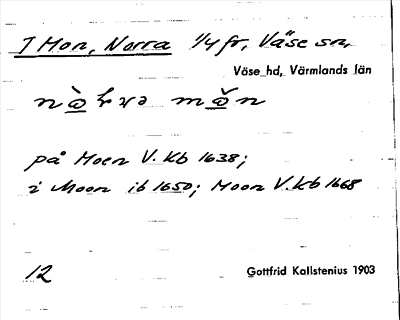 7 Mon, Norra 1/4 fr, Väse sn,
Väse hd, Värmlands län
på Moen V. Kb 1638;
i Moon ib 1650; Moon V. Kb 1668
12
Gottfrid Kallstenius 1903